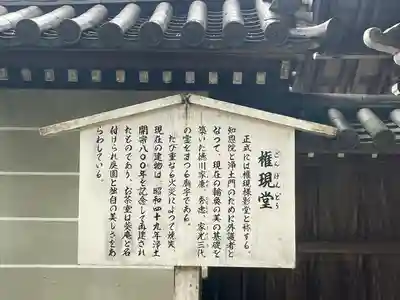 権現堂
ごんげんどう
正式には権現様影堂と称する。
知恩院と浄土門のために外護者と
なって、現在の輪奐の美の基礎を
築いた徳川家康、秀忠、家光三代
の霊をまつる廟宇である。
たび重なる火災によって焼失
現在の建物は、昭和四十九年浄土
開宗八〇〇年を記念して再建され
たものであり、お茶室は葵庵と名
付けられ庭園と独自の美しさをあ
らわしている。